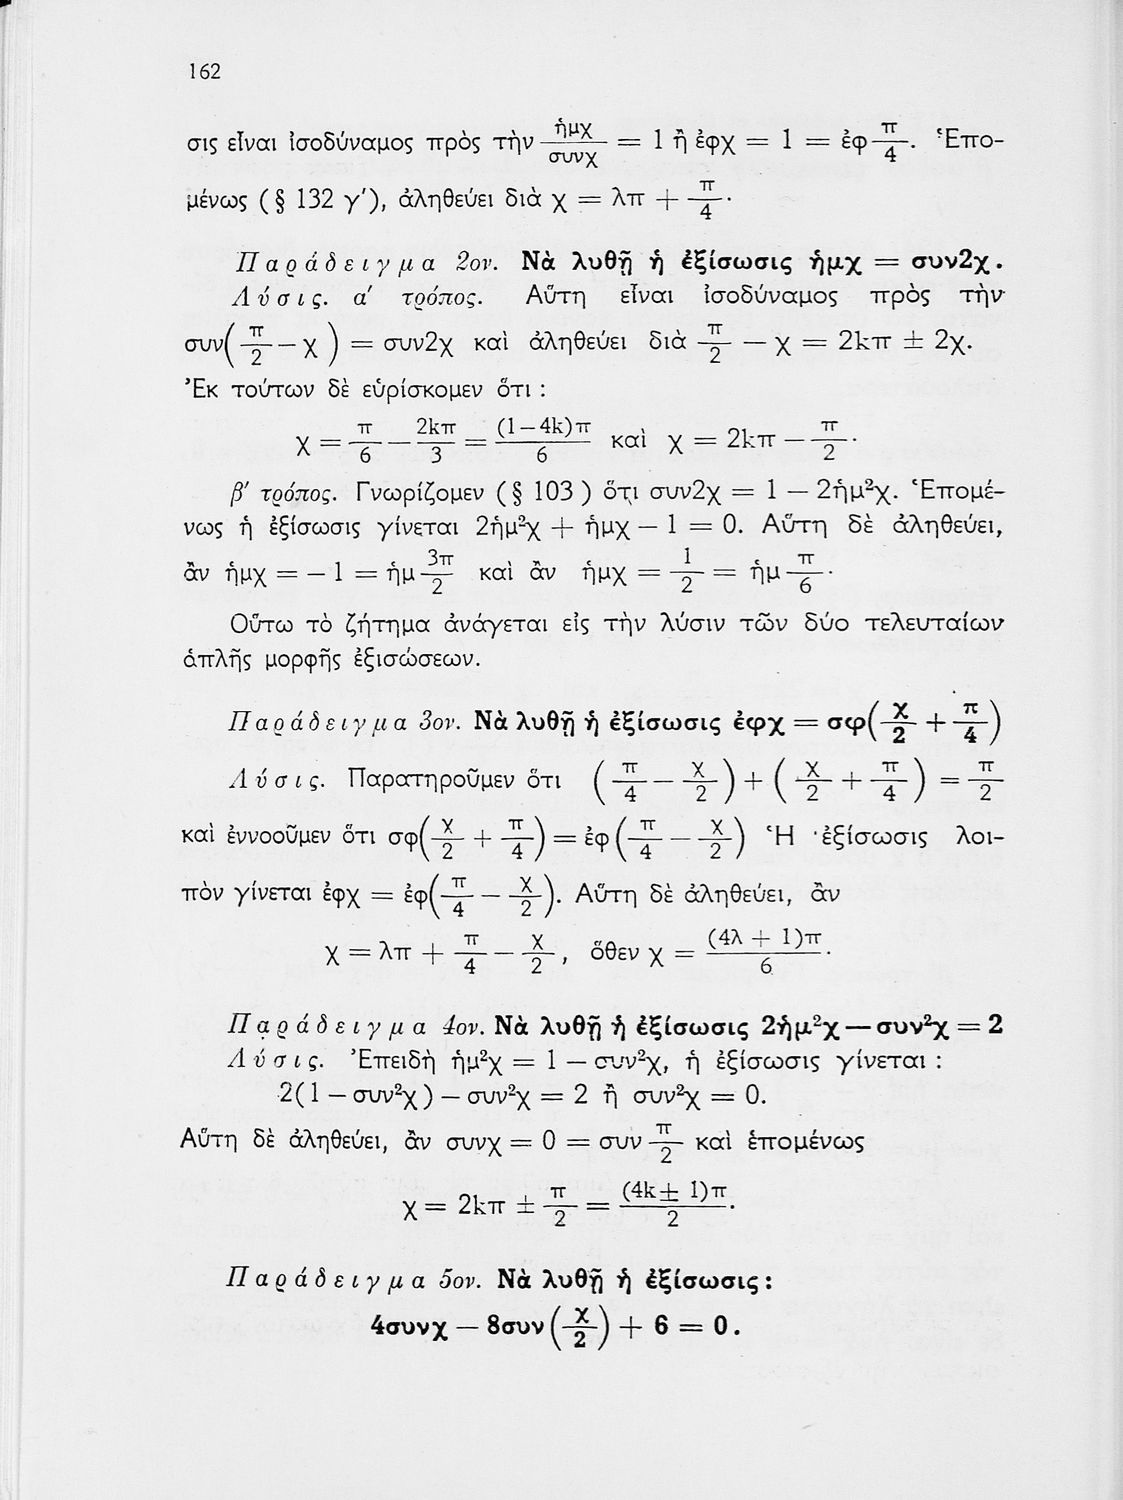 162
σις εἶναι ἰσοδύναμος πρὸς τὴν ἡμχ/συνχ = 1 ἢ ἐφχ = 1 = ἐφ π/4. Ἑπο-
μένως (§ 132 γ′), ἀληθεύει διὰ χ = λπ + π/4.
Παράδειγμα 2ον. Νὰ λυθῇ ἡ ἐξίσωσις ἡμχ = συν2χ.
Λύσις. α′ τρόπος. Αὕτη εἶναι ἰσοδύναμος πρὸς τὴν
συν(π/2 — χ) = συν2χ καὶ ἀληθεύει διὰ π/2 — χ = 2kπ ± 2χ.
Ἐκ τούτων δὲ εὑρίσκομεν ὅτι :
χ = π/6 — 2kπ/3 = (1—4k)π/6 καὶ χ = 2kπ — π/2.
β′ τρόπος. Γνωρίζομεν (§ 103) ὅτι συν2χ = 1 — 2ἡμ²χ. Ἑπομέ-
νως ἡ ἐξίσωσις γίνεται 2ἡμ²χ + ἡμχ — 1 = 0. Αὕτη δὲ ἀληθεύει,
ἂν ἡμχ = — 1 = ἡμ 3π/2 καὶ ἂν ἡμχ = 1/2 = ἡμ π/6.
Οὕτω τὸ ζήτημα ἀνάγεται εἰς τὴν λύσιν τῶν δύο τελευταίων
ἁπλῆς μορφῆς ἐξισώσεων.
Παράδειγμα 3ον. Νὰ λυθῇ ἡ ἐξίσωσις ἐφχ = σφ(χ/2 + π/4)
Λύσις. Παρατηροῦμεν ὅτι (π/4 — χ/2) + (χ/2 + π/4) = π/2
καὶ ἐννοοῦμεν ὅτι σφ(χ/2 + π/4) = ἐφ(π/4 — χ/2) Ἡ ἐξίσωσις λοι-
πὸν γίνεται ἐφχ = ἐφ(π/4 — χ/2). Αὕτη δὲ ἀληθεύει, ἂν
χ = λπ + π/4 — χ/2, ὅθεν χ = (4λ + 1)π/6.
Παράδειγμα 4ον. Νὰ λυθῇ ἡ ἐξίσωσις 2ἡμ²χ — συν²χ = 2
Λύσις. Ἐπειδὴ ἡμ²χ = 1 — συν²χ, ἡ ἐξίσωσις γίνεται :
2(1 — συν²χ) — συν²χ = 2 ἢ συν²χ = 0.
Αὕτη δὲ ἀληθεύει, ἂν συνχ = 0 = συν π/2 καὶ ἑπομένως
χ = 2kπ ± π/2 = (4k ± 1)π/2.
Παράδειγμα 5ον. Νὰ λυθῇ ἡ ἐξίσωσις:
4συνχ — 8συν(χ/2) + 6 = 0.